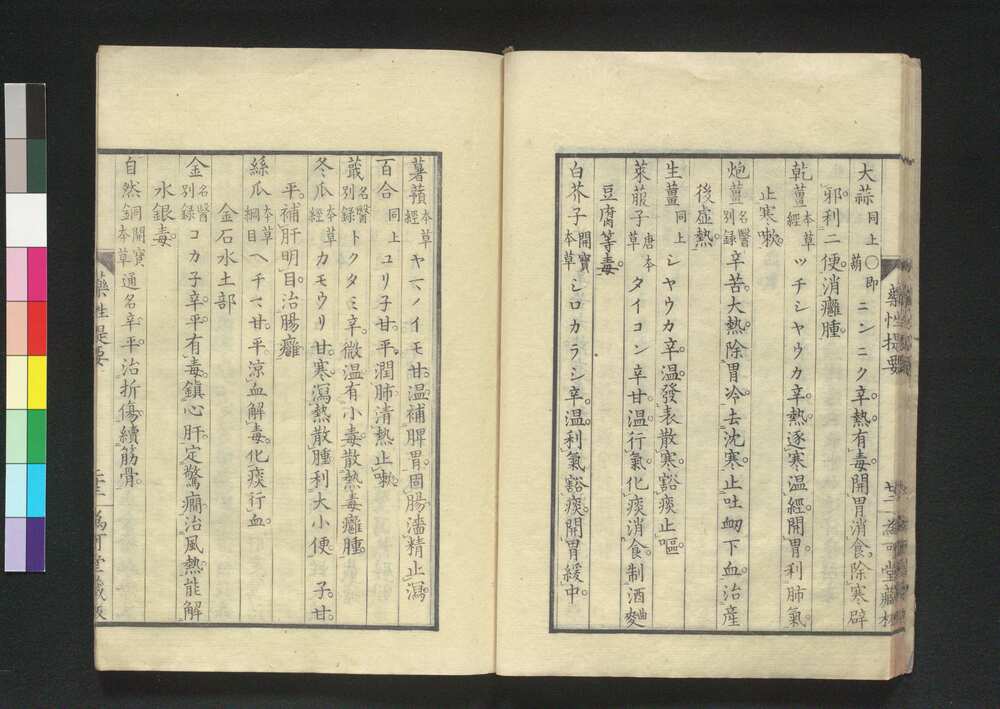 大蒜同上〇即葫ニンニク辛。熱。有毒。開胃消食。除寒辟
邪。利二便。消癰腫。
乾薑本草經ツチシヤウカ辛。熱。逐寒温經。開胃。利肺氣。
止寒嗽。
炮薑名醫別錄辛苦。大熱。除胃冷。去沈寒。止吐衂下血。治産
後虚熱。
生薑同上シヤウカ辛。温。發表散寒。豁痰止嘔。
萊菔子唐本草タイコン辛甘。温。行氣。化痰消食。制酒麴
豆腐等毒。
白芥子開寶本草シロカラシ辛。温。利氣豁痰。開胃緩中。
藥性提要 廿二 爲可堂藏板
薯蕷本草經ヤマノイモ甘。温。補脾胃。固腸濇精止瀉。
百合同上ユリ子甘。平。潤肺清熱止嗽。
蕺名醫別錄トクタミ辛。微温。有小毒。散熱毒癰腫。
冬瓜本草經カモウリ甘。寒。瀉熱散腫。利大小便。子甘。
平。補肝明目。治腸癰。
絲瓜本草綱目ヘチマ甘。平。涼血解毒。化痰行血。
金石水土部
金名醫別錄コカ子辛。平。有毒。鎮心肝。定驚癇。治風熱。能解
水銀毒。
自然銅開寶本草通名辛。平。治折傷。續筋骨。
藥性提要 爲可堂藏板